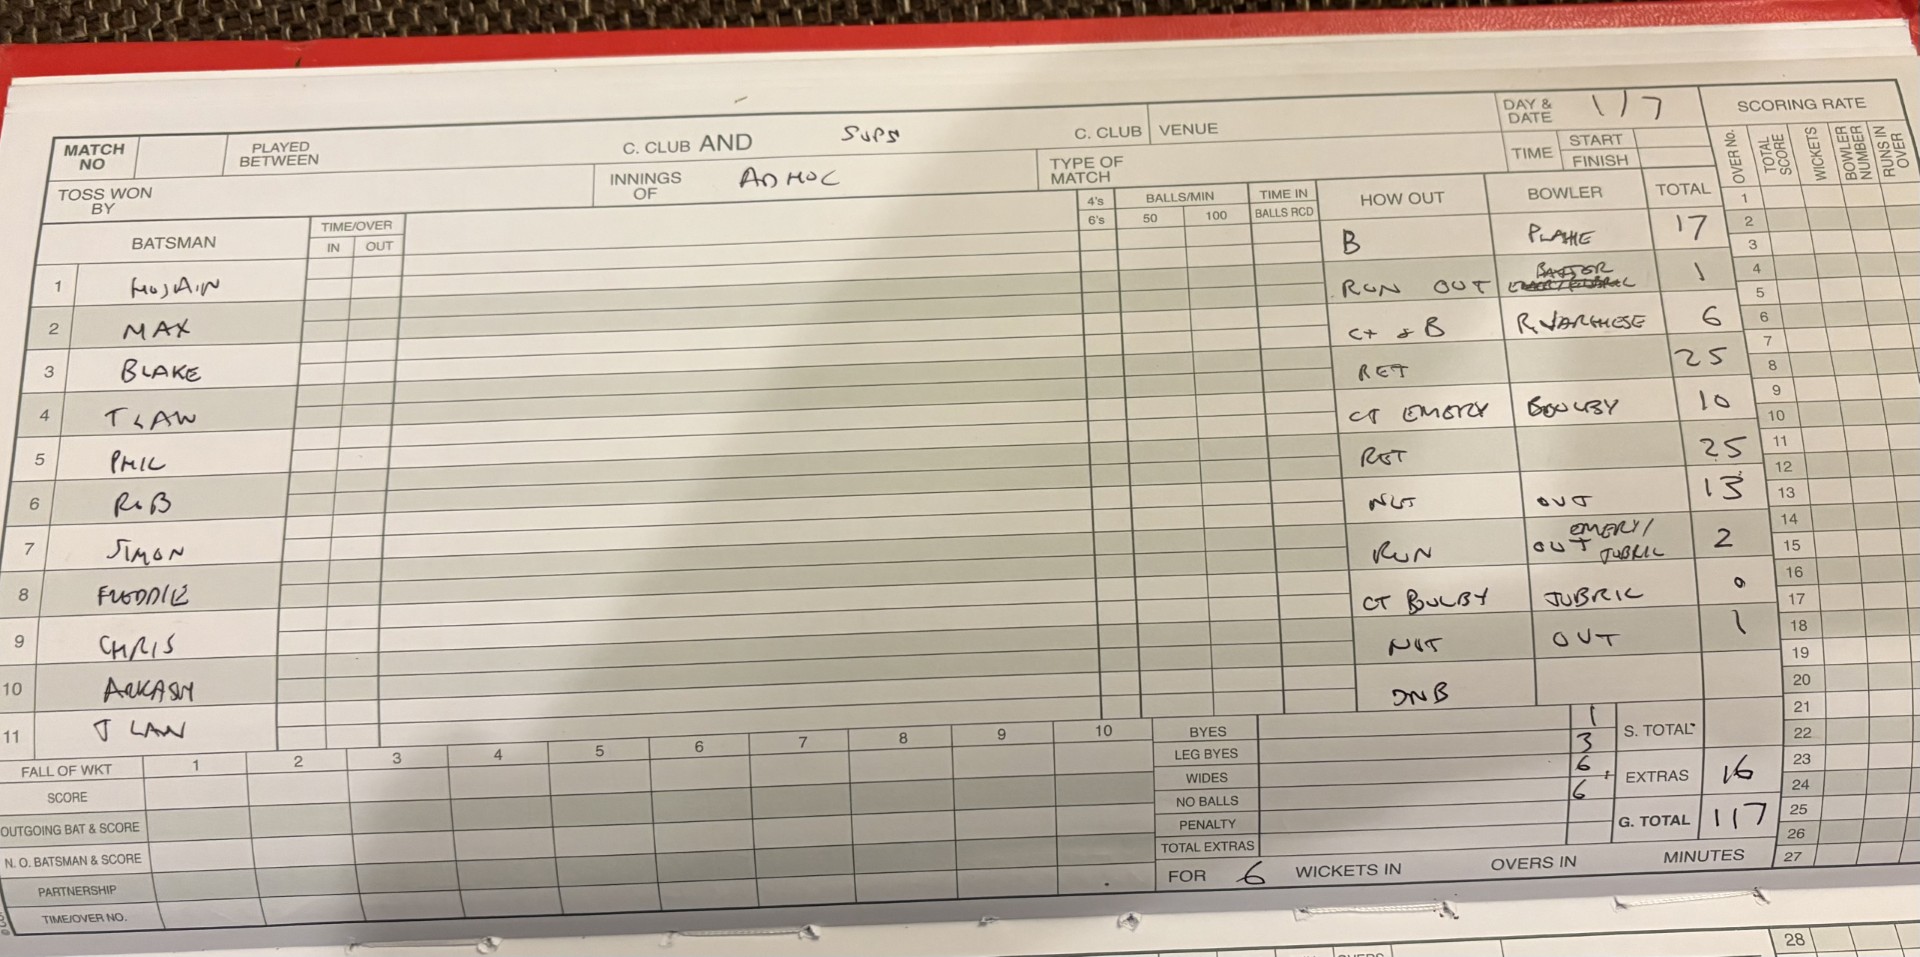 MATCH NO PLAYED BETWEEN C. CLUB AND SUPS C. CLUB VENUE DAY & DATE 1/7
TOSS WON BY INNINGS OF AD HOC TYPE OF MATCH TIME START FINISH
SCORING RATE
OVER No. TOTAL SCORE WICKETS BOWLER NUMBER RUNS IN OVER
BATSMAN TIME/OVER IN OUT 4's 6's BALLS/MIN 50 100 TIME IN BALLS RCD HOW OUT BOWLER TOTAL
1 HUSAIN B PLAHE 17
2 MAX RUN OUT BAXTER 1
3 BLAKE CT & B R.VARGHESE 6
4 T LAW RET 25
5 PHIL CT EMERY BOULBY 10
6 ROB RET 25
7 SIMON NOT OUT 13
8 FREDDIE RUN OUT EMERY/ JUBRIL 2
9 CHRIS CT BOULBY JUBRIL 0
10 ARKASH NOT OUT 1
11 J LAW DNB
FALL OF WKT 1 2 3 4 5 6 7 8 9 10
SCORE
OUTGOING BAT & SCORE
N. O. BATSMAN & SCORE
PARTNERSHIP
TIME/OVER NO.
BYES 1
LEG BYES 3
WIDES 6
NO BALLS 6
PENALTY
TOTAL EXTRAS
S. TOTAL
EXTRAS 16
G. TOTAL 117
FOR 6 WICKETS IN OVERS IN MINUTES
1
2
3
4
5
6
7
8
9
10
11
12
13
14
15
16
17
18
19
20
21
22
23
24
25
26
27
28